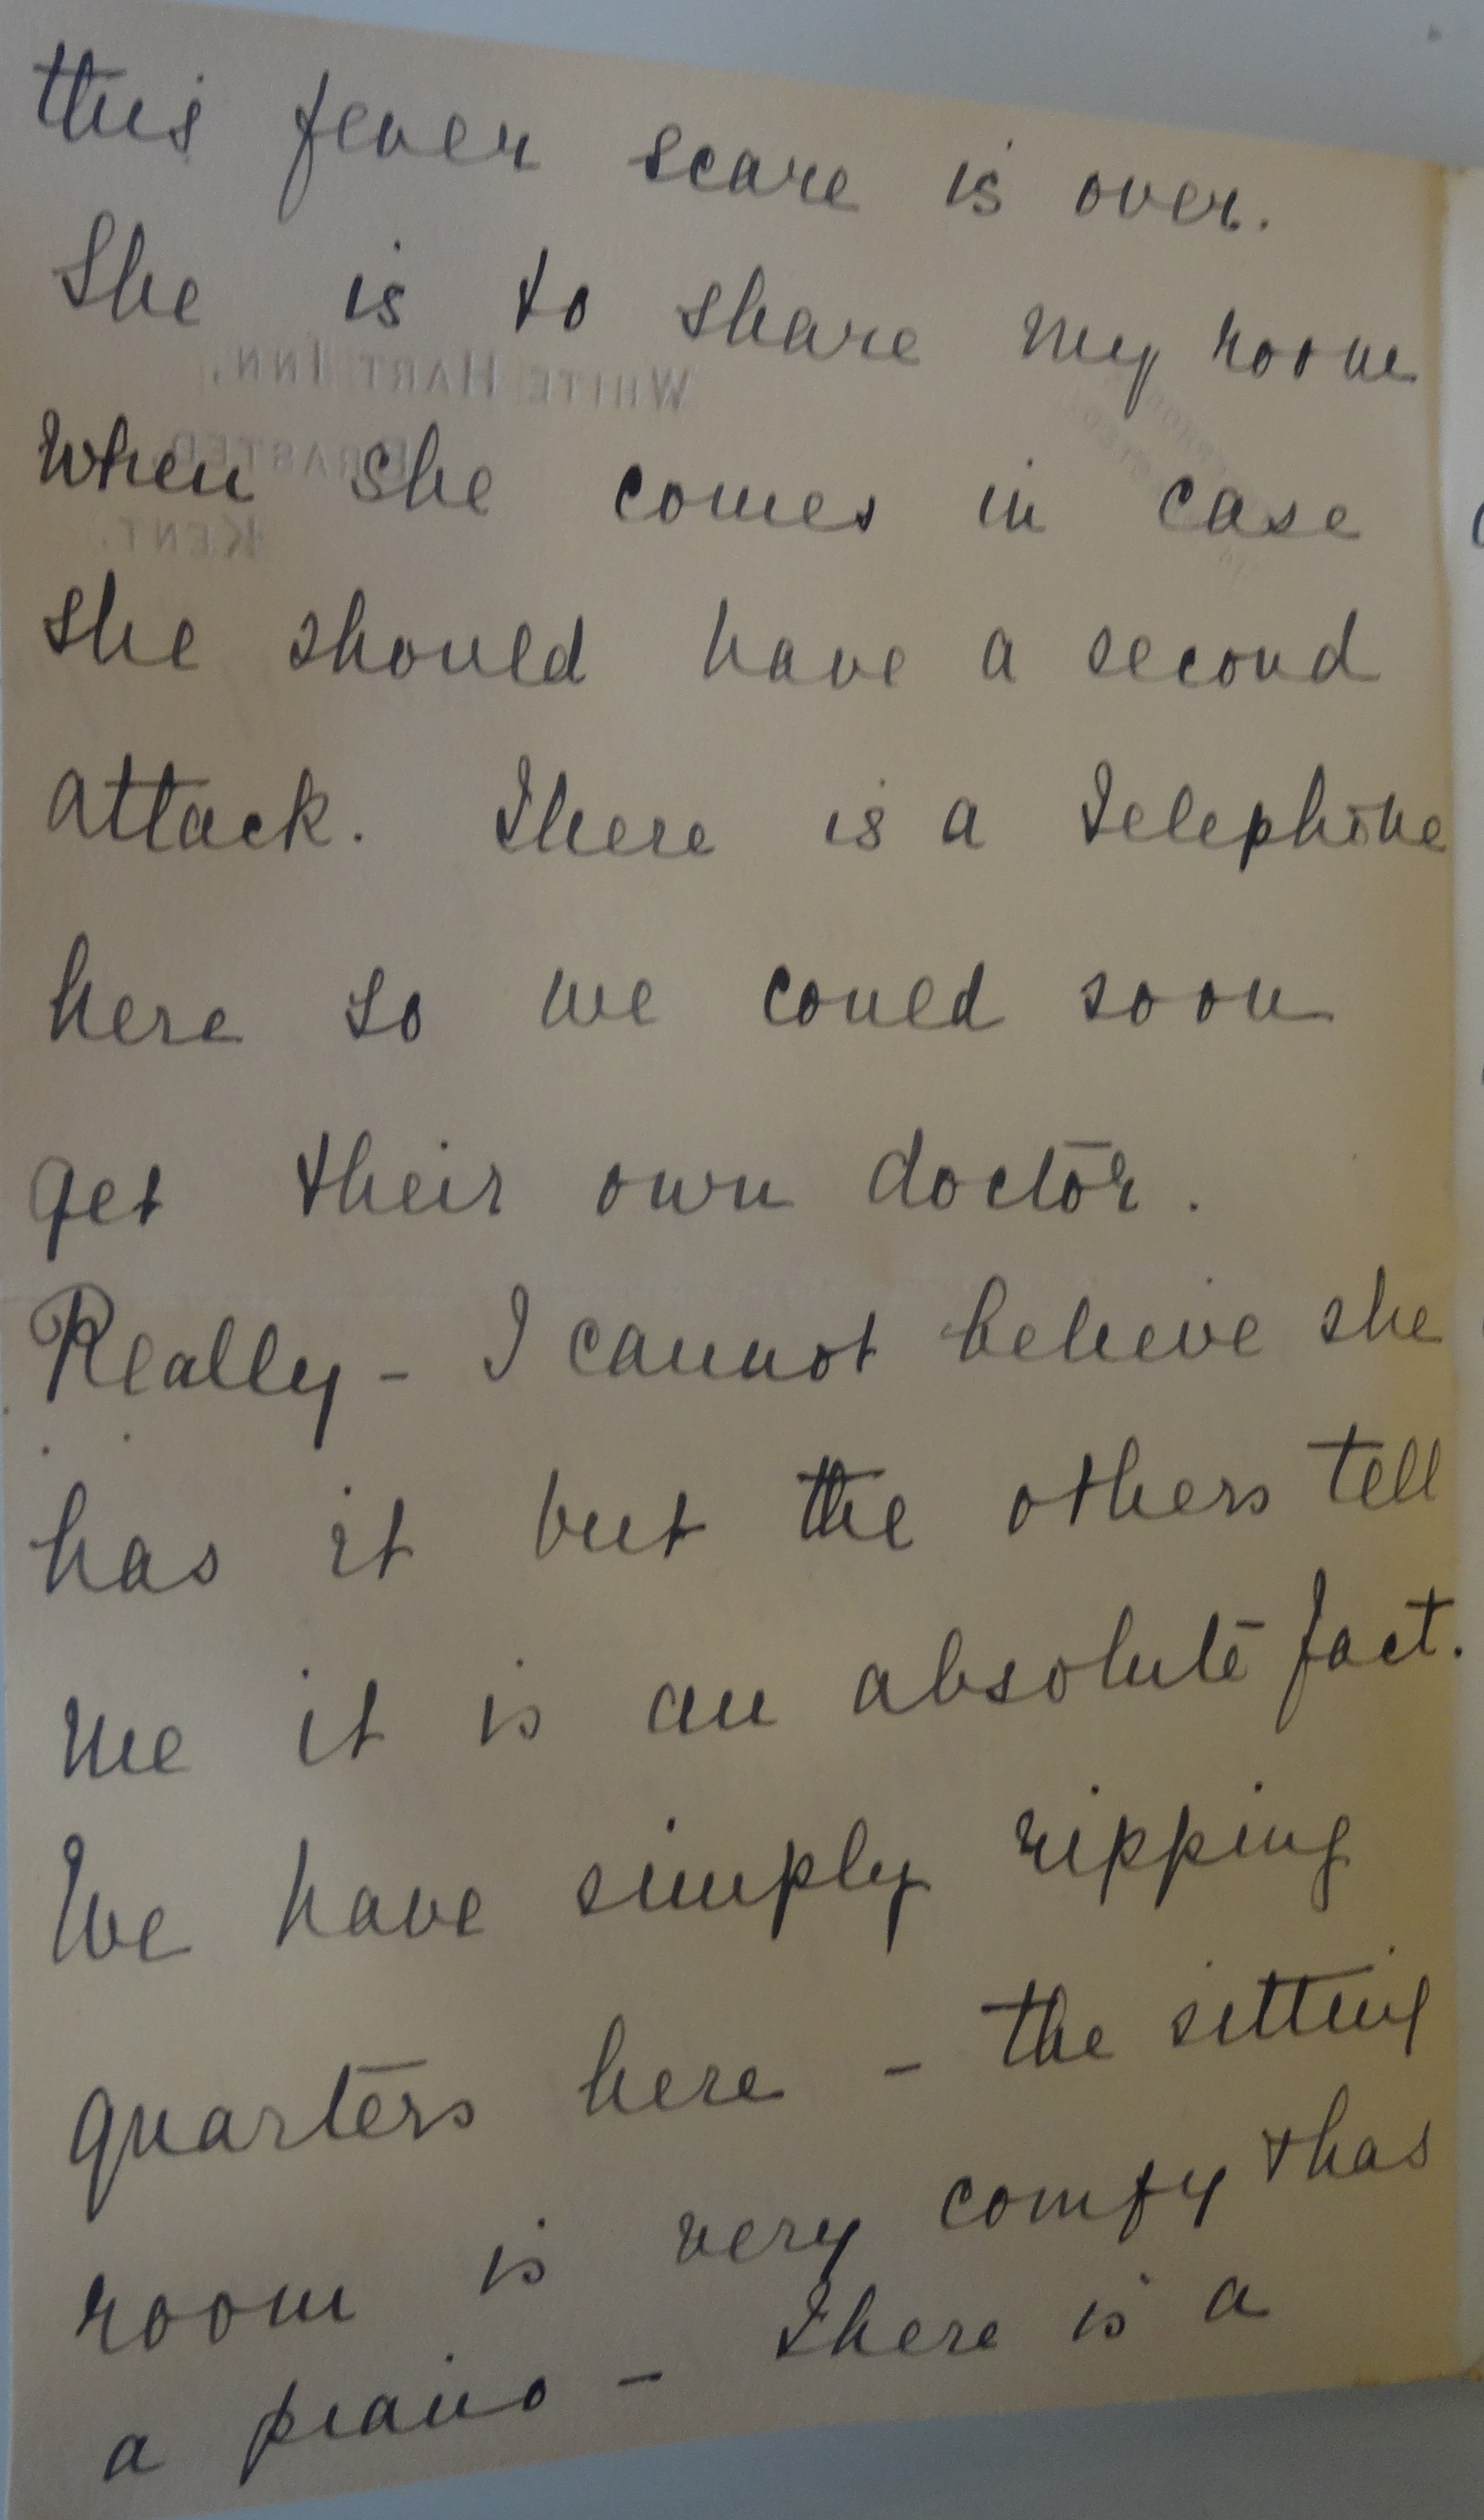 this fever scare is over.
She is to share my room
WHITE HART INN,
when she comes in case
BRASTED,
KENT.
she should have a second
attack. There is a Telephone
here so we could soon
get their own doctor.
Really - I cannot believe she
has it but the others tell
me it is an absolute fact.
We have simply ripping
quarters here - the sitting
room is very comfy & has
a piano - There is a